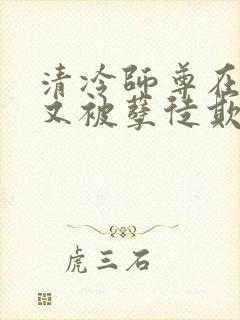 清冷师尊在
又被孽徒欺
虎三石